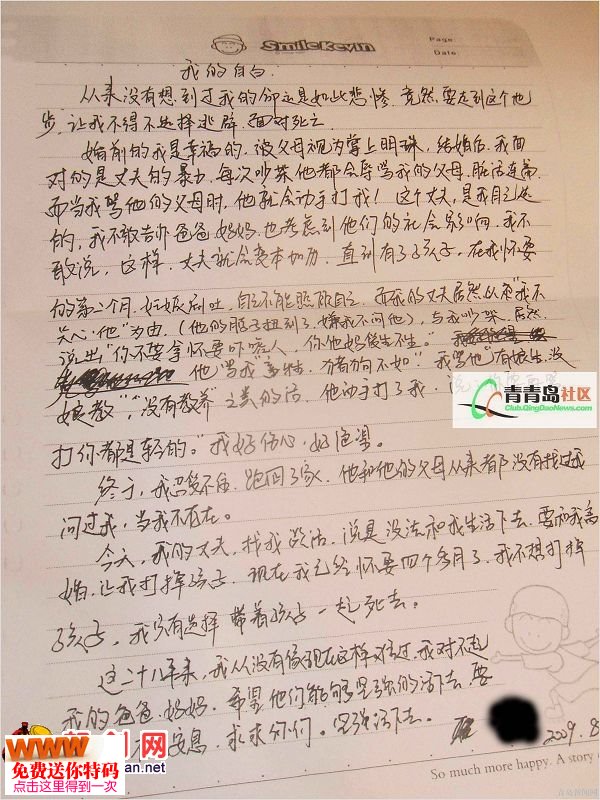 Smile Kevin
Page:
Date:
我的自白
从来没有想到过我的命运是如此悲惨,竟然要走到这个地
步,让我不得不选择逃避,面对死亡
婚前的我是幸福的,被父母视为掌上明珠,结婚后,我面
对的是丈夫的暴力,每次吵架他都会辱骂我的父母,脏话连篇
而当我骂他的父母时,他就会动手打我!这个丈夫,是我自己选
的,我不敢告诉爸爸妈妈,也考虑到他们的社会影响,我不
敢说,这样,丈夫就会变本加厉,直到有了孩子,在我怀孕
的第二个月,妊娠剧吐,自己不能照顾自己,而我的丈夫居然以不“我不
关心他”为由,(他的脚子扭到了,嫌我不问他),与我吵架,居然
说出“你不要拿怀孕吓唬人,你他妈能生不生。”
他骂我畜牲,猪狗不如”“我骂他”有娘生没
娘教”,“没有教养”之类的话,他动手打了我,说
打你都是轻的。”我好伤心,好绝望。
终于,我忍受不住,跑回了家,他和他的父母从来都没有找过我
问过我,当我不存在。
今天,我的丈夫,找我谈话,说是没法和我生活下去,要和我离
婚,让我打掉孩子,现在我已经怀孕四个多月了,我不想打掉
孩子,我只有选择带着孩子一起死去。
这二十八年来,我从没有像现在这样难过,我对不起
我的爸爸、妈妈,希望他们能够坚强的活下去,要
安息,求求你们。坚强活下去。
2009.8
青青岛社区
Club.QingDaoNews.com
WWW
免费送你特码
点击这里得到一次
创网
an.net
So much more happy. A story
青岛新闻网